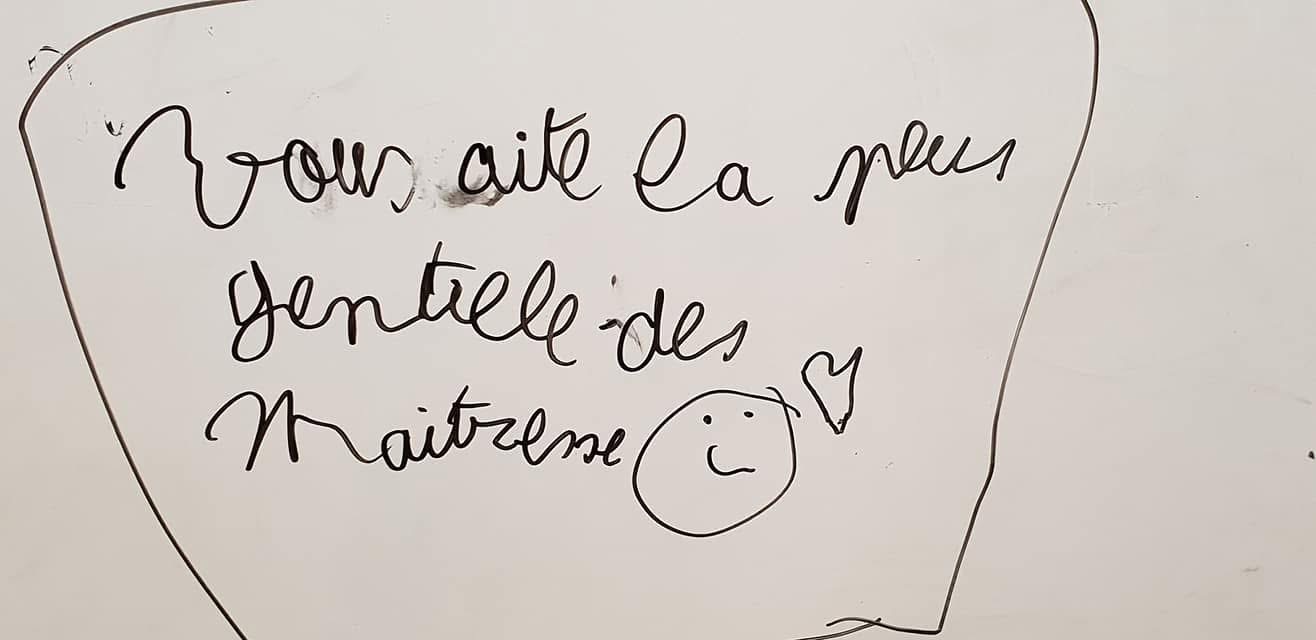 Vous aite la plus
gentielle des
Maitresse